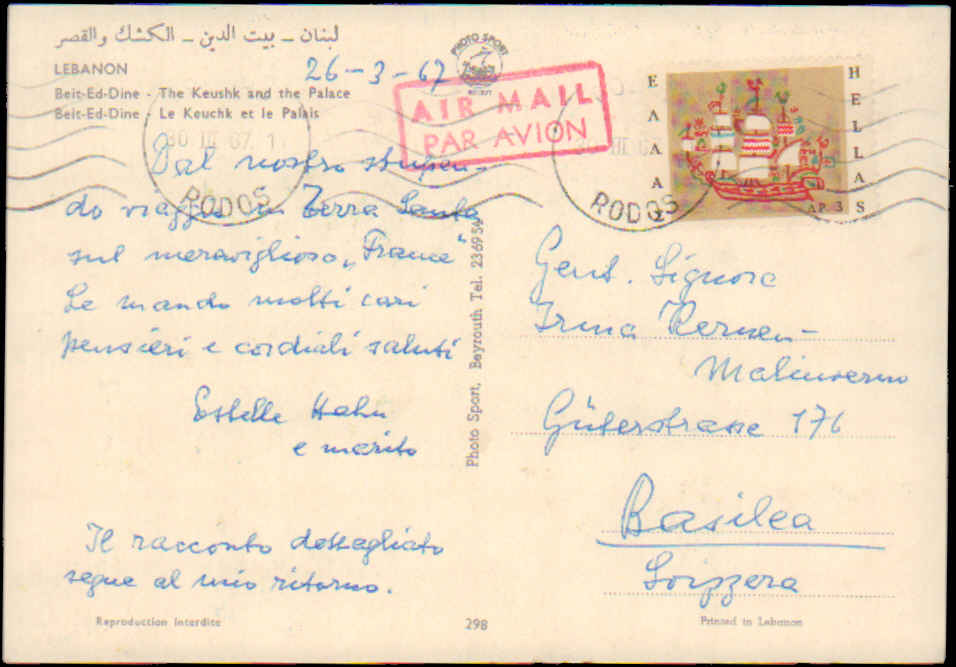 لبنان ــ بيت الدين ــ الكشك والقصر
LEBANON
Beit-Ed-Dine - The Keushk and the Palace
Beit-Ed-Dine - Le Keuchk et le Palais
26-3-67
PHOTO SPORT
BEYRUT
AIR MAIL
PAR AVION
30 III 67. 1
RODOS
RODOS
ΕΛΛΑΣ
HELLAS
ΔΡ. 3
Dal nostro stupen-
do viaggio in Terra Santa
sul meraviglioso „France"
Le mando molti cari
pensieri e cordiali saluti
Estelle Hahn
e marito
Il racconto dettagliato
segue al mio ritorno.
Photo Sport, Beyrouth Tel. 236954
Gent. Signora
Irma
Malinverno
Güterstrasse 176
Basilea
Svizzera
Reproduction Interdite
298
Printed in Lebanon